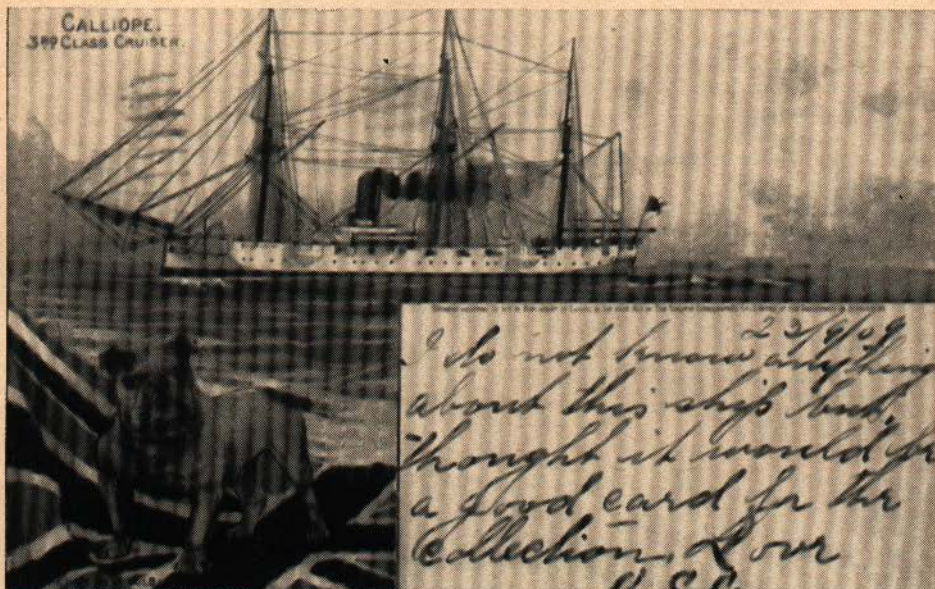 CALLIOPE.
3RD CLASS CRUISER.
23/9/09
I do not know anything
about this ship but,
thought it would be
a good card for the
Collection. Love